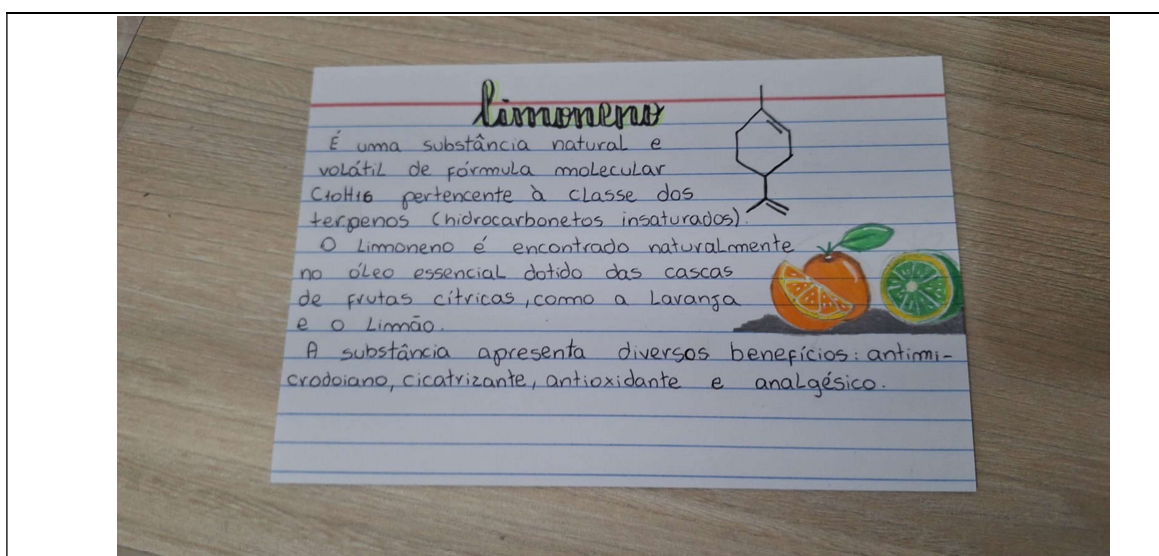 limoneno
É uma substância natural e
volátil de fórmula molecular
C10H16 pertencente à classe dos
terpenos (hidrocarbonetos insaturados).
O Limoneno é encontrado naturalmente
no óleo essencial dotido das cascas
de frutas cítricas, como a Laranja
e o Limão.
A substância apresenta diversos benefícios: antimi-
crodoiano, cicatrizante, antioxidante e analgésico.